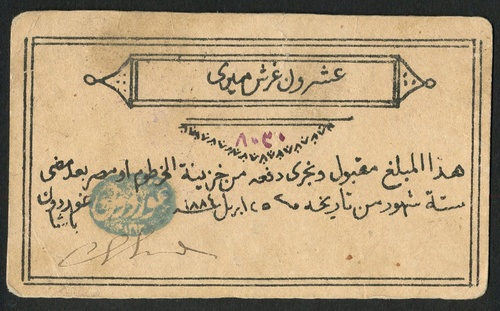 عشرون غرش ميرى
٨٠٣٠
هذا المبلغ مقبول ويجرى دفعه من خزينة الخرطوم او مصر بعد مضى
ستة شهور من تاريخه ٢٥ ابريل سنة ١٨٨٤
غوردون
باشا